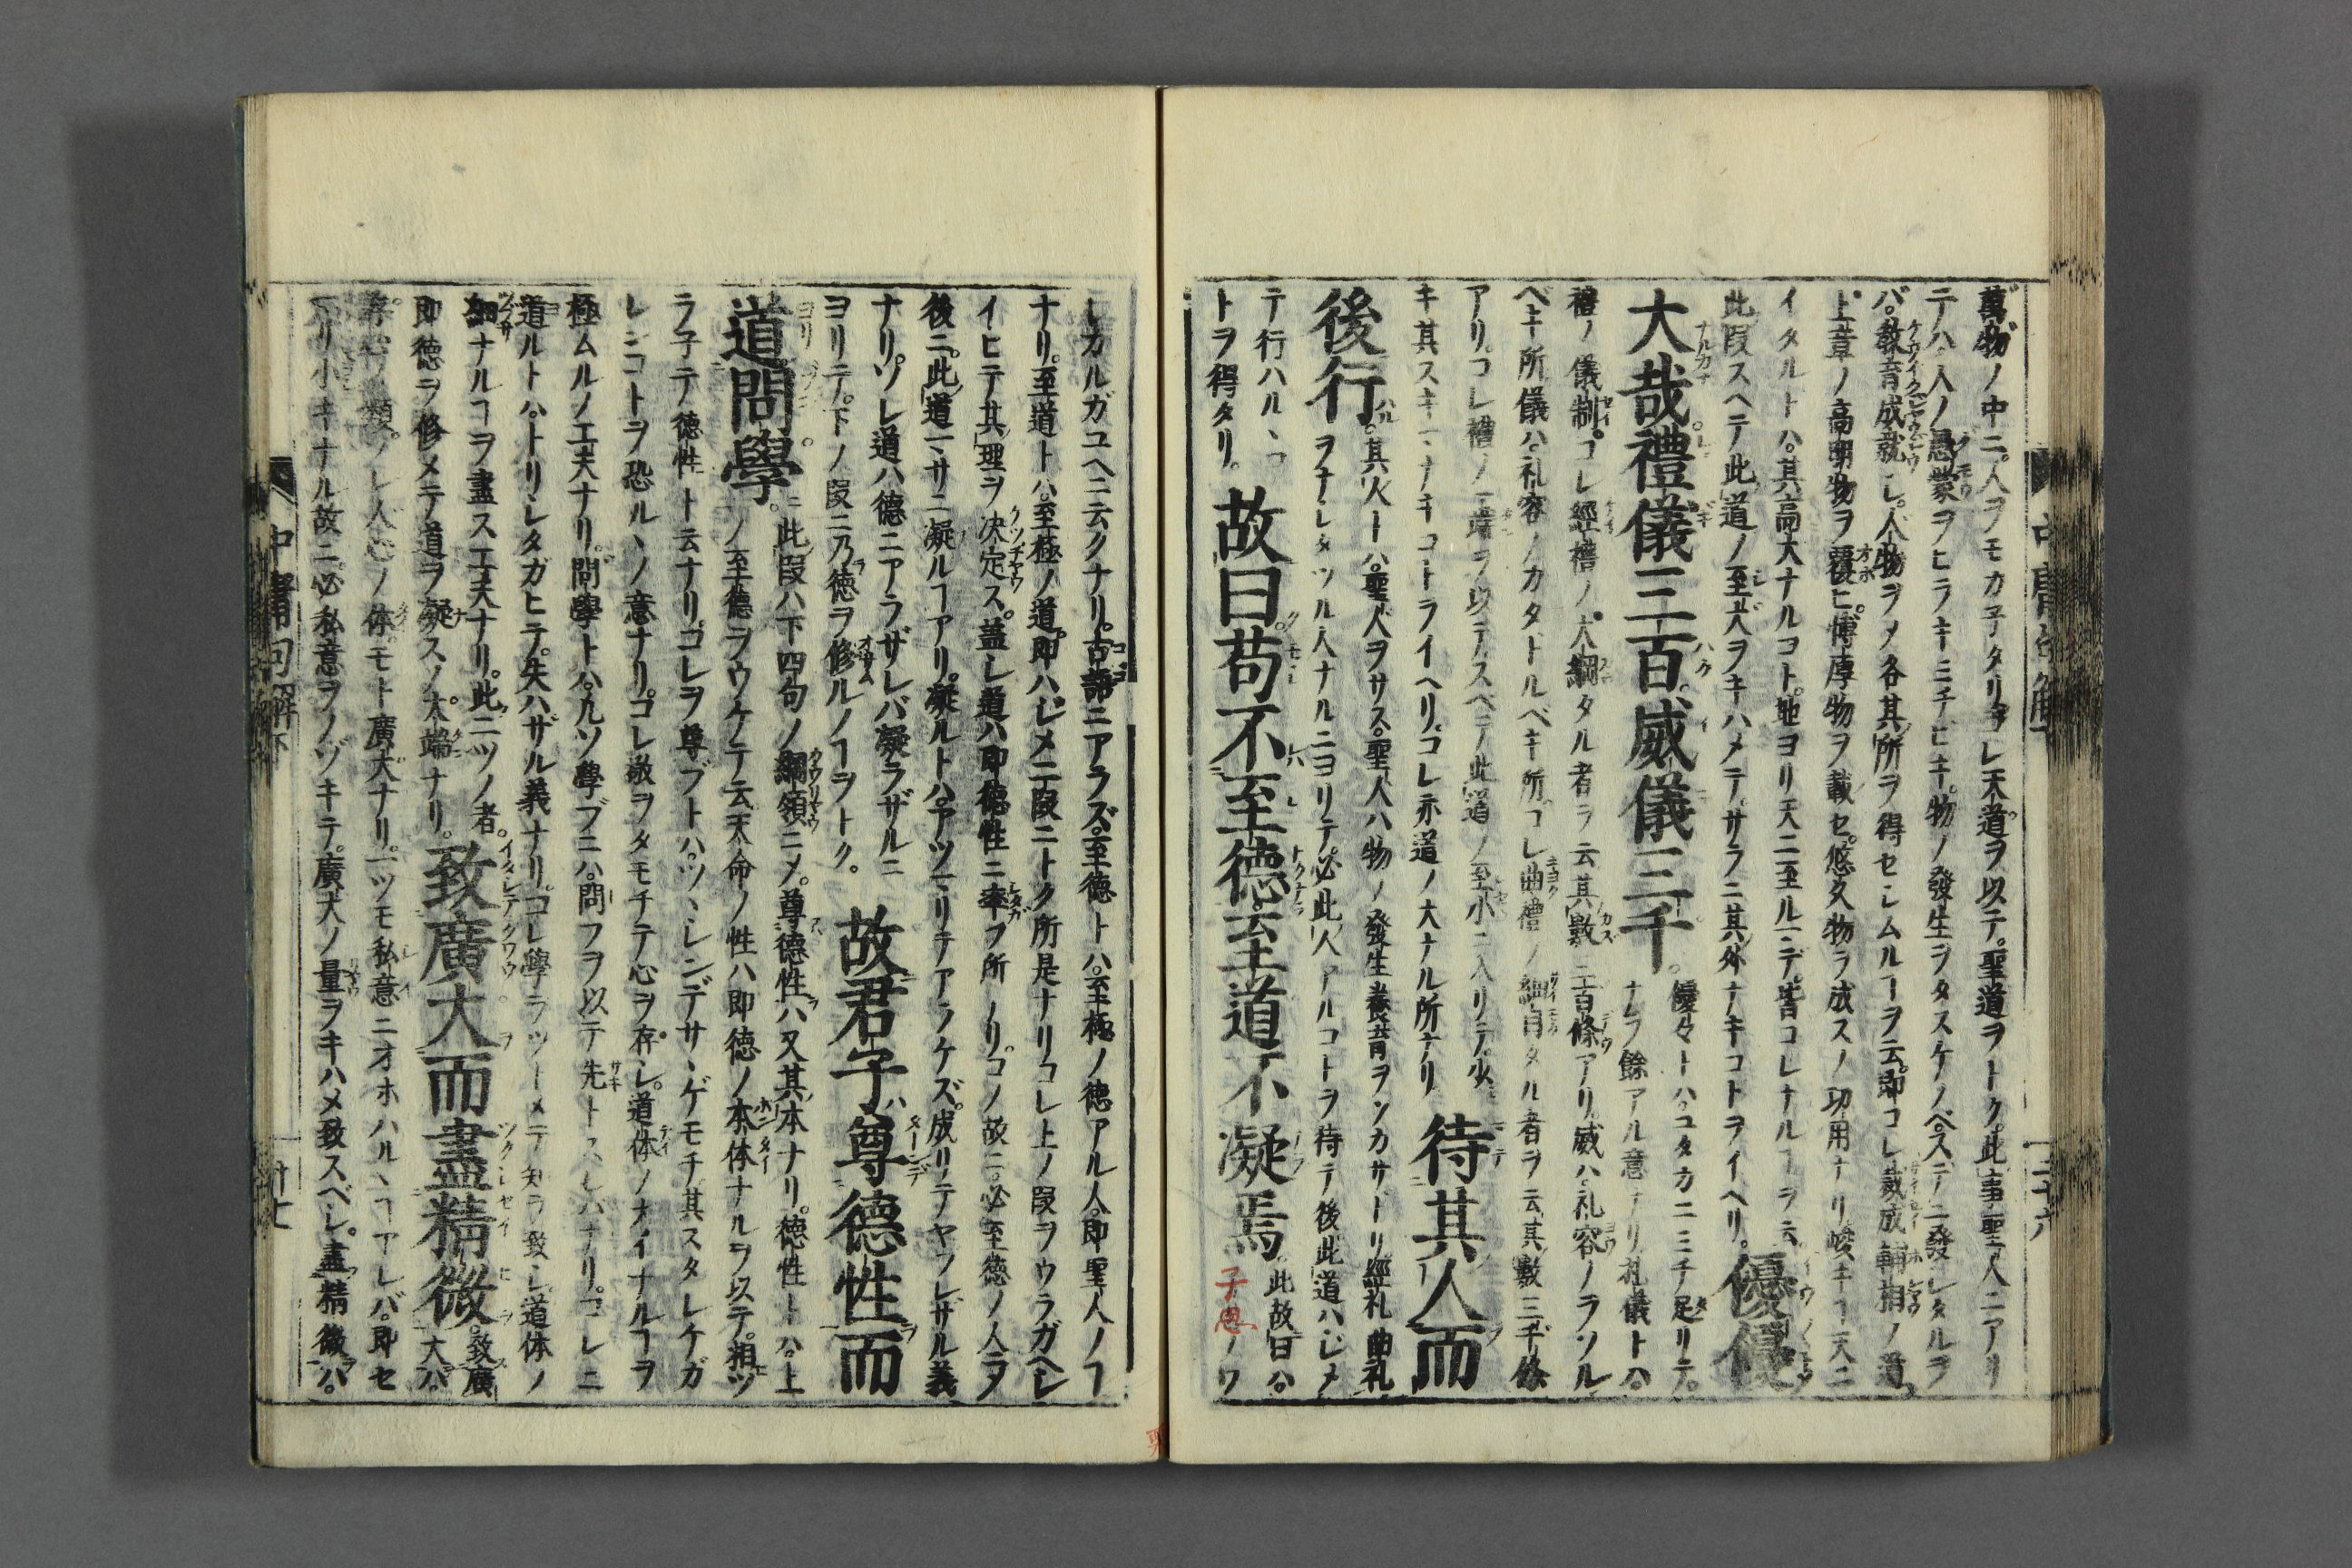 萬物ノ中ニ。人ヲモカ子タリ。コレ天道ヲ以テ。聖道ヲトク。此事聖人ニアリ
テハ。人ノ愚蒙ヲヒラキミチビキ。物ノ發生ヲタスケノベ。スデニ發レタルヲ
バ。教育成就シ。人物ヲメ各其所ヲ得セシムルヿヲ云。即コレ裁成輔相ノ道
上章ノ高明物ヲ覆ヒ。博厚物ヲ載セ。悠久物ヲ成スノ功用ナリ峻キヿ天ニ
イタルトハ。其高大ナルコト。地ヨリ天ニ至ルマデ。皆コレナルヿヲ云。優優
此段スヘテ此道ノ至大ヲキハメテ。サラニ其外ナキコトヲイヘリ。
大哉禮儀三百。威儀三千。優々トハ。ユタカニミチ足リテ。
ナヲ餘アル意ナリ礼儀トハ。
禮ノ儀制。コレ經禮ノ大綱タル者ヲ云其數三百條アリ。威ハ。礼容ノヲソル
ベキ所儀ハ。礼容ノカタトルベキ所コレ曲禮ノ細目タル者ヲ云其數三千條
アリ。コレ禮ノ一端ヲ以テ。スベテ此道ノ至小ニ入リテ。少
キ其スキマナキコトヲイヘリ。コレ亦道ノ大ナル所ナリ 待其人而
後行。其人トハ。聖人ヲサス。聖人ハ物ノ發生養育ヲツカサトリ經礼曲礼
ヲナシタツル人ナルニヨリテ。必此人アルコトヲ待テ後此道ハシメ
テ行ハルヽコ
トヲ得タリ。故曰。苟不至德。至道不凝焉。此故曰ハ。
子思ノワ
シカルガユヘニ云クナリ。古語ニアラズ。至徳トハ。至極ノ徳アル人。即聖人ノヿ
ナリ。至道トハ。至極ノ道。即ハジメ二段ニトク所是ナリコレ上ノ段ヲウラガヘシ
イヒテ其理ヲ決定ス。蓋シ道ハ即徳性ニ率フ所ノリ。コノ故ニ。必至徳ノ人ヲ
後ニ。此道マサニ凝ルヿアリ。凝ルトハ。アツマリテアラケズ。成リテヤフレザル義
ナリ。ソレ道ハ徳ニアラザレバ凝ラザルニ
ヨリテ。下ノ段ニ乃徳ヲ修ルノヿヲトク。故君子。尊德性而
道問學。此段ハ下四句ノ綱領ニメ。尊德性ハ又其本ナリ。徳性トハ。上
ノ至徳ヲウケテ云天命ノ性ハ即徳ノ本体ナルヲ以テ。相ツ
ラ子テ徳性ト云ナリ。コレヲ尊ブトハ。ツヽシンデサヽゲモチ其スタレケガ
レンコトヲ恐ルヽノ意ナリ。コレ敬ヲタモチテ心ヲ存シ。道体ノ大イナルヿヲ
極ムルノ工夫ナリ。問學トハ。凡ソ學ブニハ。問フヲ以テ先トスレバナリ。コレニ
道ルトハ。トリシタガヒテ。失ハザル義ナリ。コレ學ヲツトメテ知ヲ致シ道体ノ
細ナルヿヲ盡ス工夫ナリ。此二ツノ者。
即徳ヲ修メテ道ヲ凝スノ大端ナリ。致廣大而盡精微。致廣
大ハ。
人心ノ体。モト廣大ナリ。一ツモ私意ニオホハルヽヿアレバ。即セ
マリ小キナル故ニ。必私意ヲノゾキテ。廣大ノ量ヲキハメ致スベシ。盡精微ハ。
中庸句解下